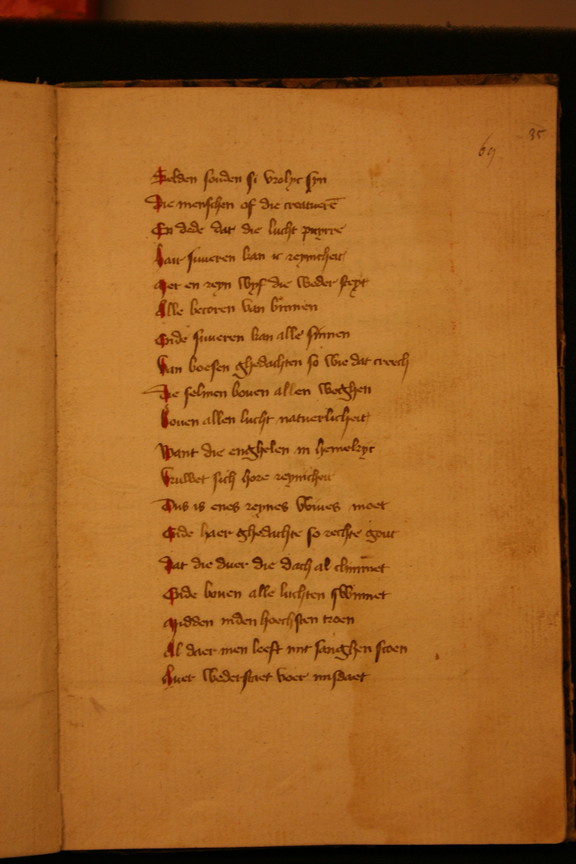 69 35
Selden souden si vrolyc syn
Die menschen of die creaturē
En dede dat die lucht puyrre
suueren kan ic reynicheit
Met en reyn wyf die weder stept
Alle becoren van binnen
Ende suueren kan alle sinnen
Van boesen ghedachten so wie dat creech
Die selmen bouen allen weghen
Bouen allen lucht natuerlicheit
Want die enghelen in hemelryc
sich hore reynicheit
Dus is enes reynes wiues moet
Ende haer ghedachte so rechte gout
Dat die duer die dach al climmet
Ende bouen alle luchten swimmet
Midden inden hoechsten troen
Al daer men leeft mit sanghen scoen
Auer wederstaet voer misdaet